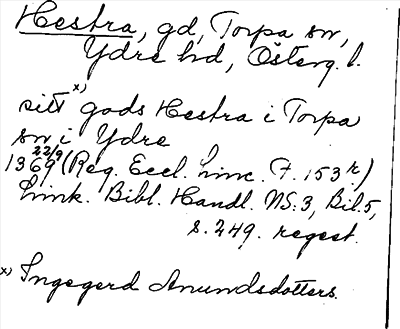 Hestra, gd, Torpa sn,
Ydre hd, Österg. l.
sitt x) gods Hestra i Torpa
sn i Ydre
1369 22/9 (Reg. Eccl. Linc. F. 153 r)
Link. Bibl. Handl. NS: 3, Bil. 5,
s. 249. regest.
x) Ingegerd Anundsdotters.